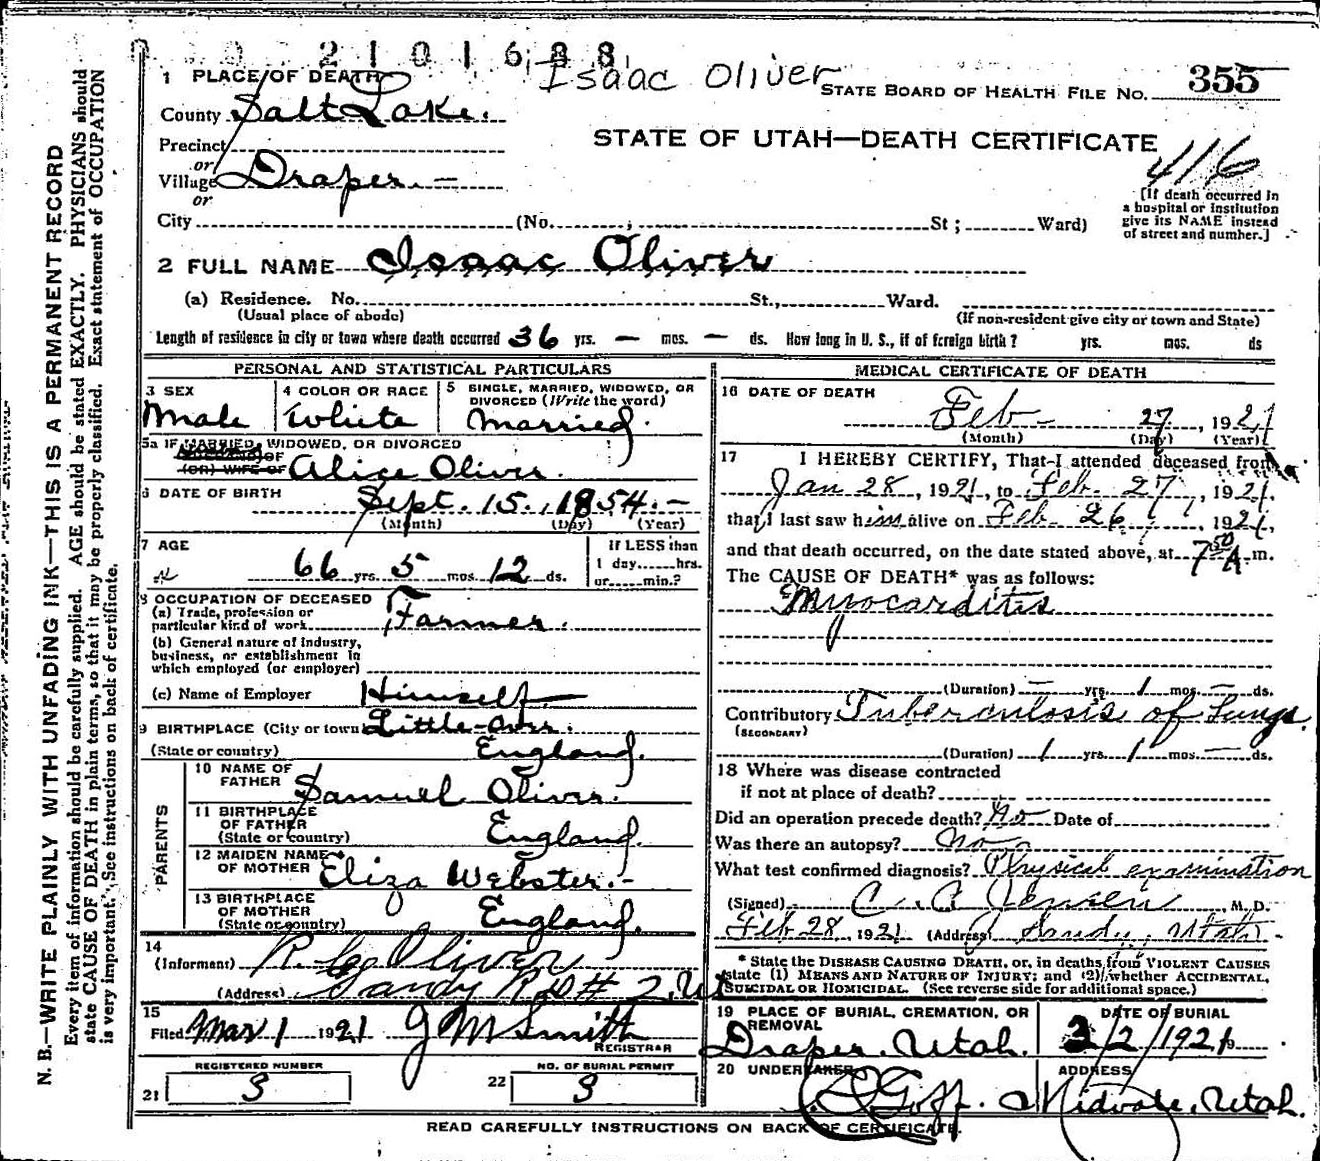 2101688
Isaac Oliver
STATE BOARD OF HEALTH FILE NO. 355
1 PLACE OF DEATH
County Salt Lake.
STATE OF UTAH—DEATH CERTIFICATE
416
Precinct
or
Village Draper.—
or
[If death occurred in
a hospital or institution
give its NAME instead
of street and number.]
City (No. St; Ward)
2 FULL NAME Isaac Oliver
(a) Residence. No. St., Ward.
(Usual place of abode) (If non-resident give city or town and State)
Length of residence in city or town where death occurred 36 yrs. — mos. — ds. How long in U. S., if of foreign birth? yrs. mos. ds
PERSONAL AND STATISTICAL PARTICULARS
3 SEX
Male
4 COLOR OR RACE
White
5 SINGLE, MARRIED, WIDOWED, OR
DIVORCED (Write the word)
Married.
5a IF MARRIED, WIDOWED, OR DIVORCED
HUSBAND OF
(OR) WIFE OF Alice Oliver.
6 DATE OF BIRTH Sept. 15. 1854.-
(Month) (Day) (Year)
7 AGE
66 yrs. 5 mos. 12 ds.
If LESS than
1 day......hrs.
or......min.?
8 OCCUPATION OF DECEASED
(a) Trade, profession or
particular kind of work Farmer.
(b) General nature of industry,
business, or establishment in
which employed (or employer)
(c) Name of Employer Himself
9 BIRTHPLACE (City or town) Little-over.
(State or country) England.
PARENTS
10 NAME OF
FATHER Samuel Oliver.
11 BIRTHPLACE
OF FATHER
(State or country) England.
12 MAIDEN NAME
OF MOTHER Eliza Webster.-
13 BIRTHPLACE
OF MOTHER
(State or country) England.
14
(Informant) Oliver
(Address) Sandy R #2, Ut
15
Filed Mar 1 1921 J M Smith
REGISTRAR
REGISTERED NUMBER
21 3
NO. OF BURIAL PERMIT
22 3
MEDICAL CERTIFICATE OF DEATH
16 DATE OF DEATH
Feb- 27, 1921
(Month) (Day) (Year)
17 I HEREBY CERTIFY, That I attended deceased from
Jan 28, 1921, to Feb. 27, 1921.
that I last saw him alive on Feb. 26, 1921,
and that death occurred, on the date stated above, at 7 50 A m.
The CAUSE OF DEATH* was as follows:
Myocarditis
(Duration) — yrs. 1 mos. — ds.
Contributory Tuberculosis of Lungs.
(SECONDARY)
(Duration) 1 yrs. 1 mos. — ds.
18 Where was disease contracted
if not at place of death?
Did an operation precede death? No Date of
Was there an autopsy? No
What test confirmed diagnosis? Physical examination
(Signed) C. A Jensen M. D.
Feb 28, 1921 (Address) Sandy, Utah.
* State the DISEASE CAUSING DEATH, or, in deaths from VIOLENT CAUSES
state (1) MEANS AND NATURE OF INJURY; and (2) whether ACCIDENTAL,
SUICIDAL OR HOMICIDAL. (See reverse side for additional space.)
19 PLACE OF BURIAL, CREMATION, OR
REMOVAL
Draper. Utah.
DATE OF BURIAL
3/2/1921
20 UNDERTAKER
Goff.
ADDRESS
Midvale, Utah.
READ CAREFULLY INSTRUCTIONS ON BACK OF CERTIFICATE.
N. B.—WRITE PLAINLY WITH UNFADING INK—THIS IS A PERMANENT RECORD
Every item of information should be carefully supplied. AGE should be stated EXACTLY. PHYSICIANS should
state CAUSE OF DEATH in plain terms, so that it may be properly classified. Exact statement of OCCUPATION
is very important. See instructions on back of certificate.